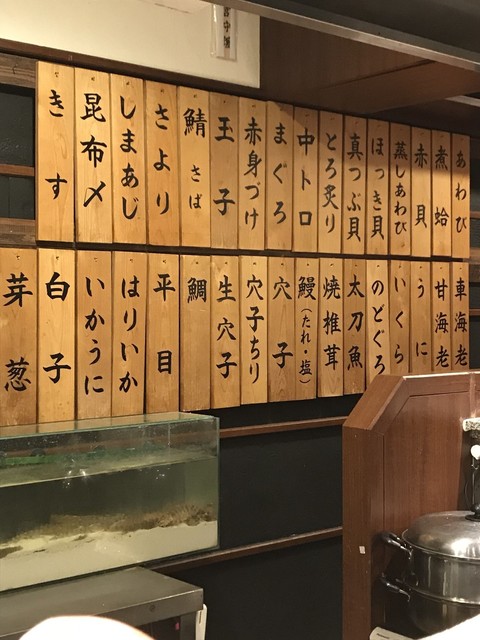 あわび
煮蛤
赤貝
蒸しあわび
ほっき貝
真つぶ貝
とろ炙り
中トロ
まぐろ
赤身づけ
玉子
鯖さば
さより
しまあじ
昆布〆
きす
車海老
甘海老
うに
いくら
のどぐろ
太刀魚
焼椎茸
鰻(たれ・塩)
穴子
穴子ちり
生穴子
鯛
平目
はりいか
いかうに
白子
芽葱